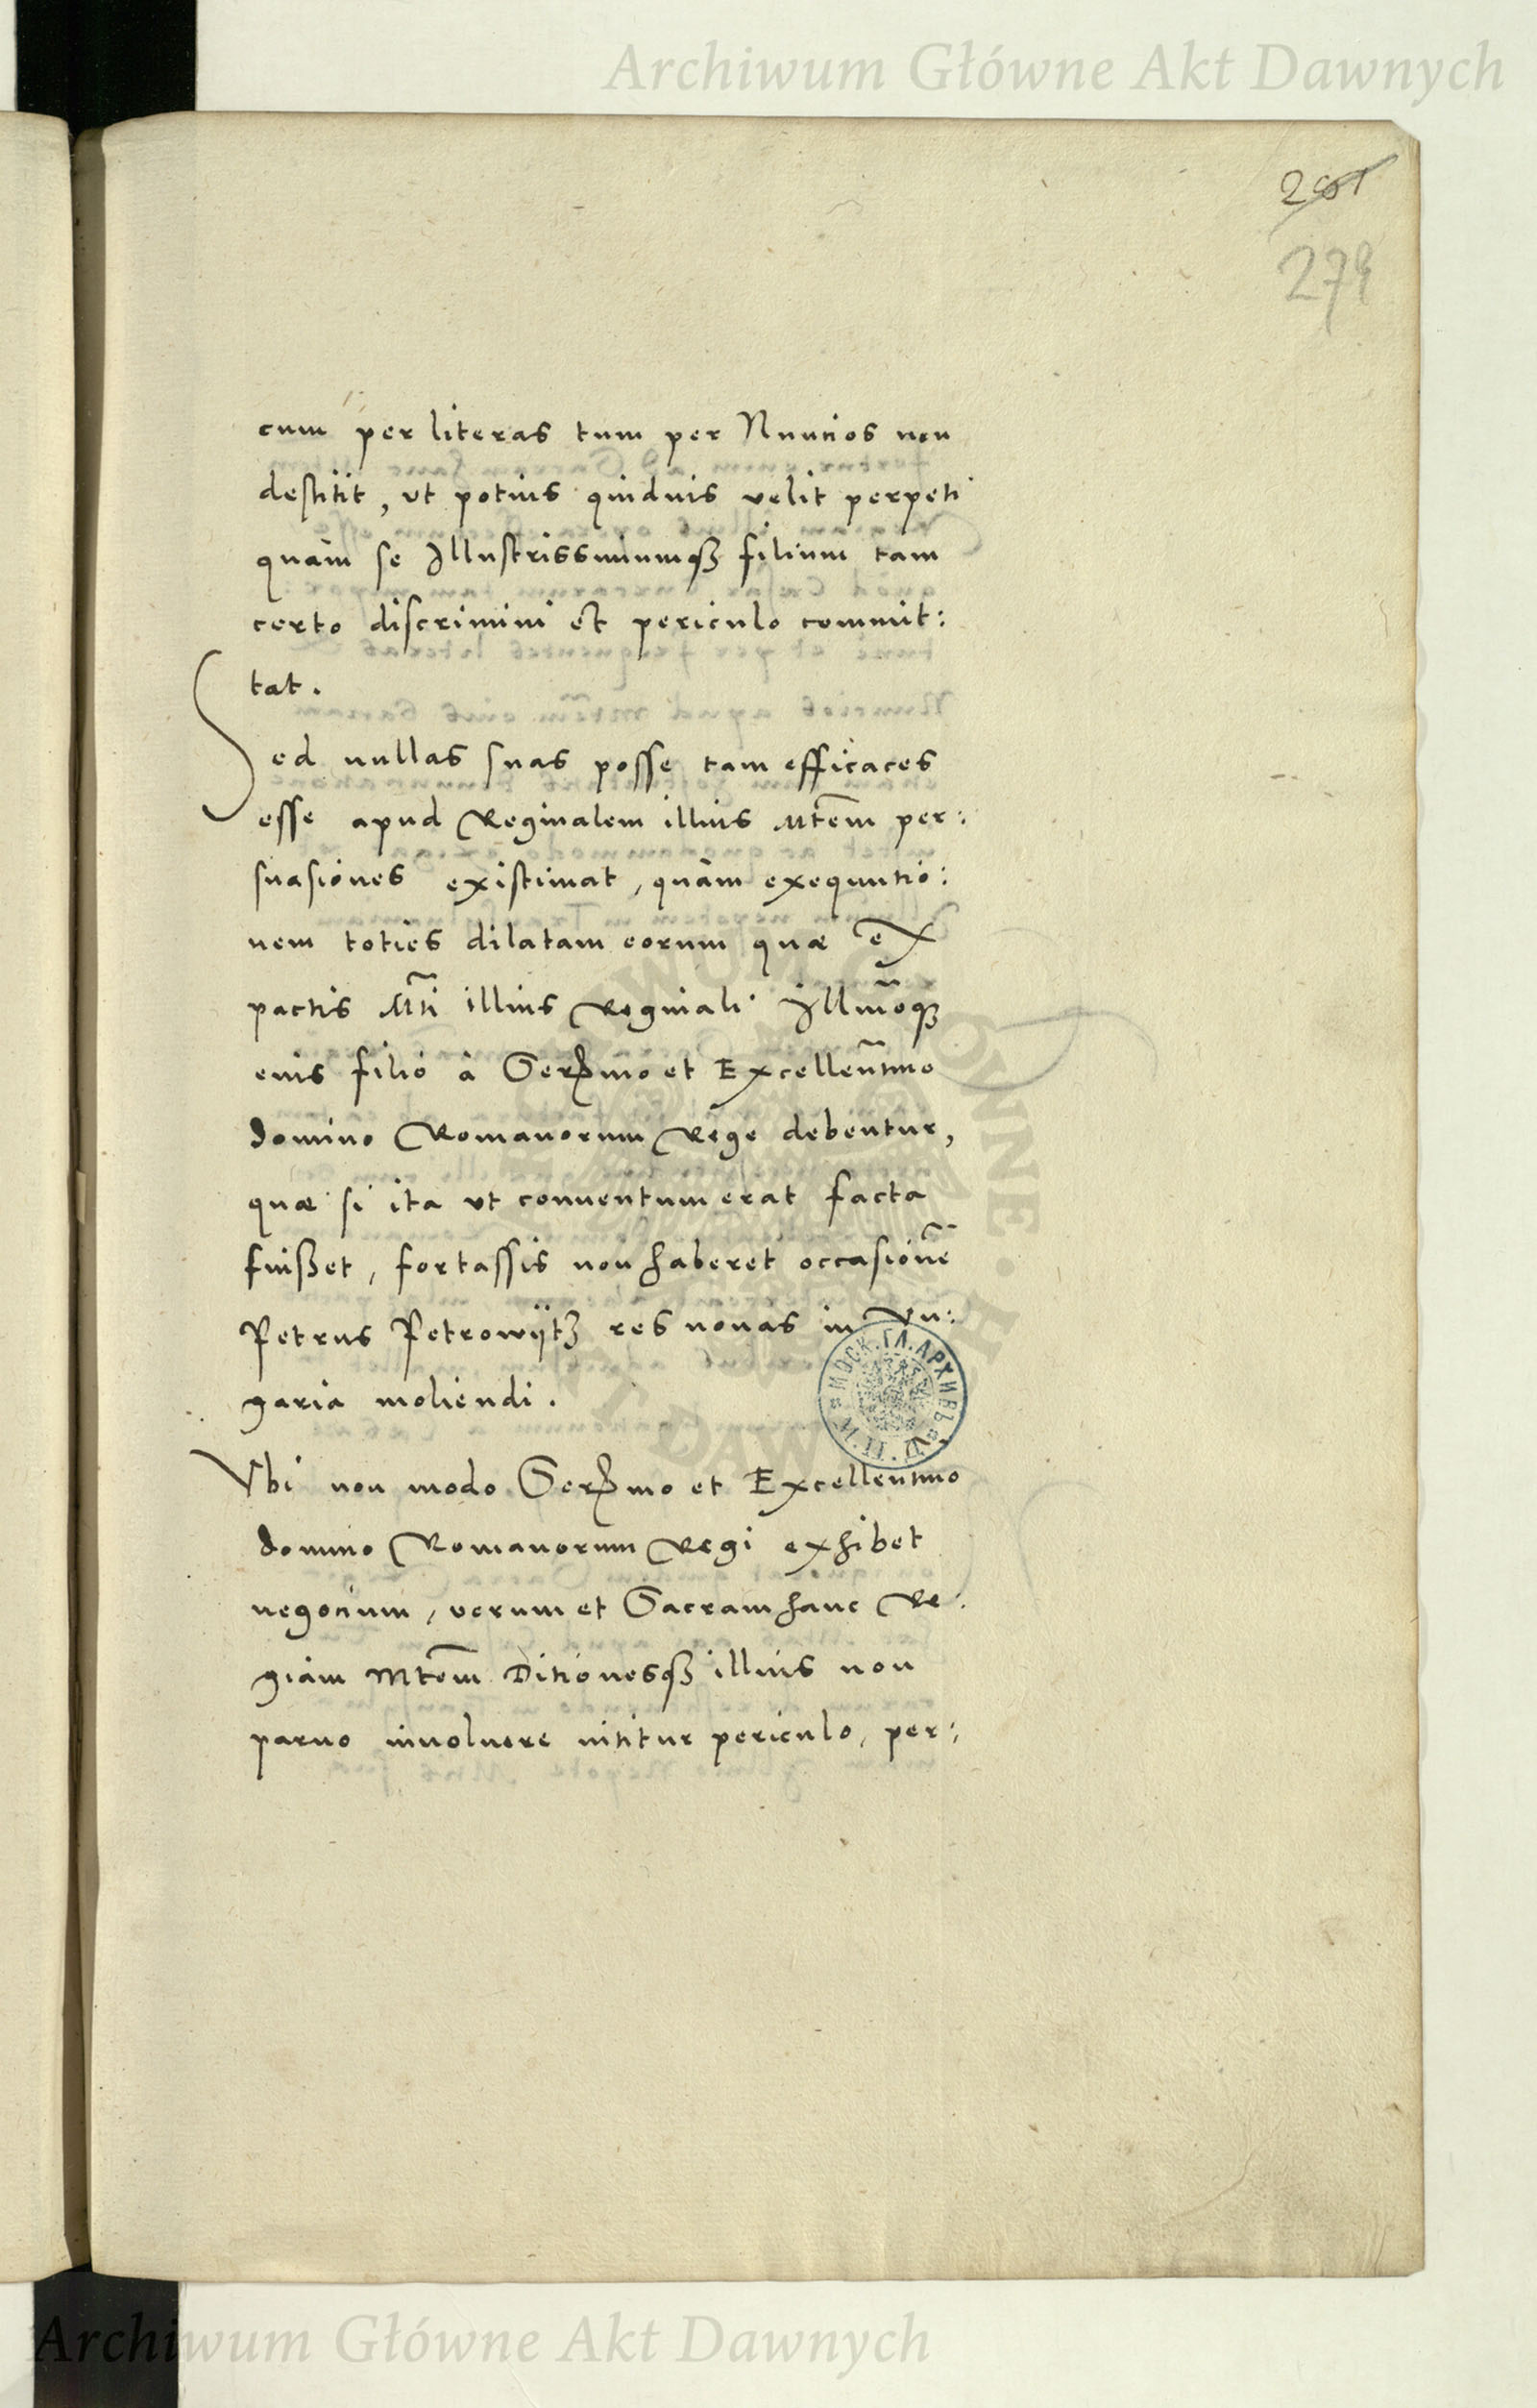 Archiwum Główne Akt Dawnych
281
279
cum per literas tum per Nuncios non
destitit, ut potius quiduis velit perpeti
quàm se Illustrissimumqꝫ filium tam
certo discrimini et periculo commit:
tat.
Sed nullas suas posse tam efficaces
esse apud Reginalem illius Mtem̃ per:
suasiones existimat, quàm exequutio:
nem toties dilatam eorum quæ ex
pactis Mti᷉ illius Reginali Illmõqꝫ
eius filio à Serßmo et Excellentm̃o
domino Romanorum Rege debentur,
quæ si ita ut conuentum erat facta
fuißet, fortassis non haberet occasionẽ
Petrus Petrowÿtz res nouas in Vn:
garia moliendi.
Vbi non modo Serßmo et Excellentmo
domino Romanorum Regi exhibet
negocium, verum et Sacram hanc Re:
giam Mtem̃ Ditionesqꝫ illius non
paruo inuoluere nititur periculo, per:
МОСК. ГЛ. АРХИВЪ
М. И. Д.
Archiwum Główne Akt Dawnych